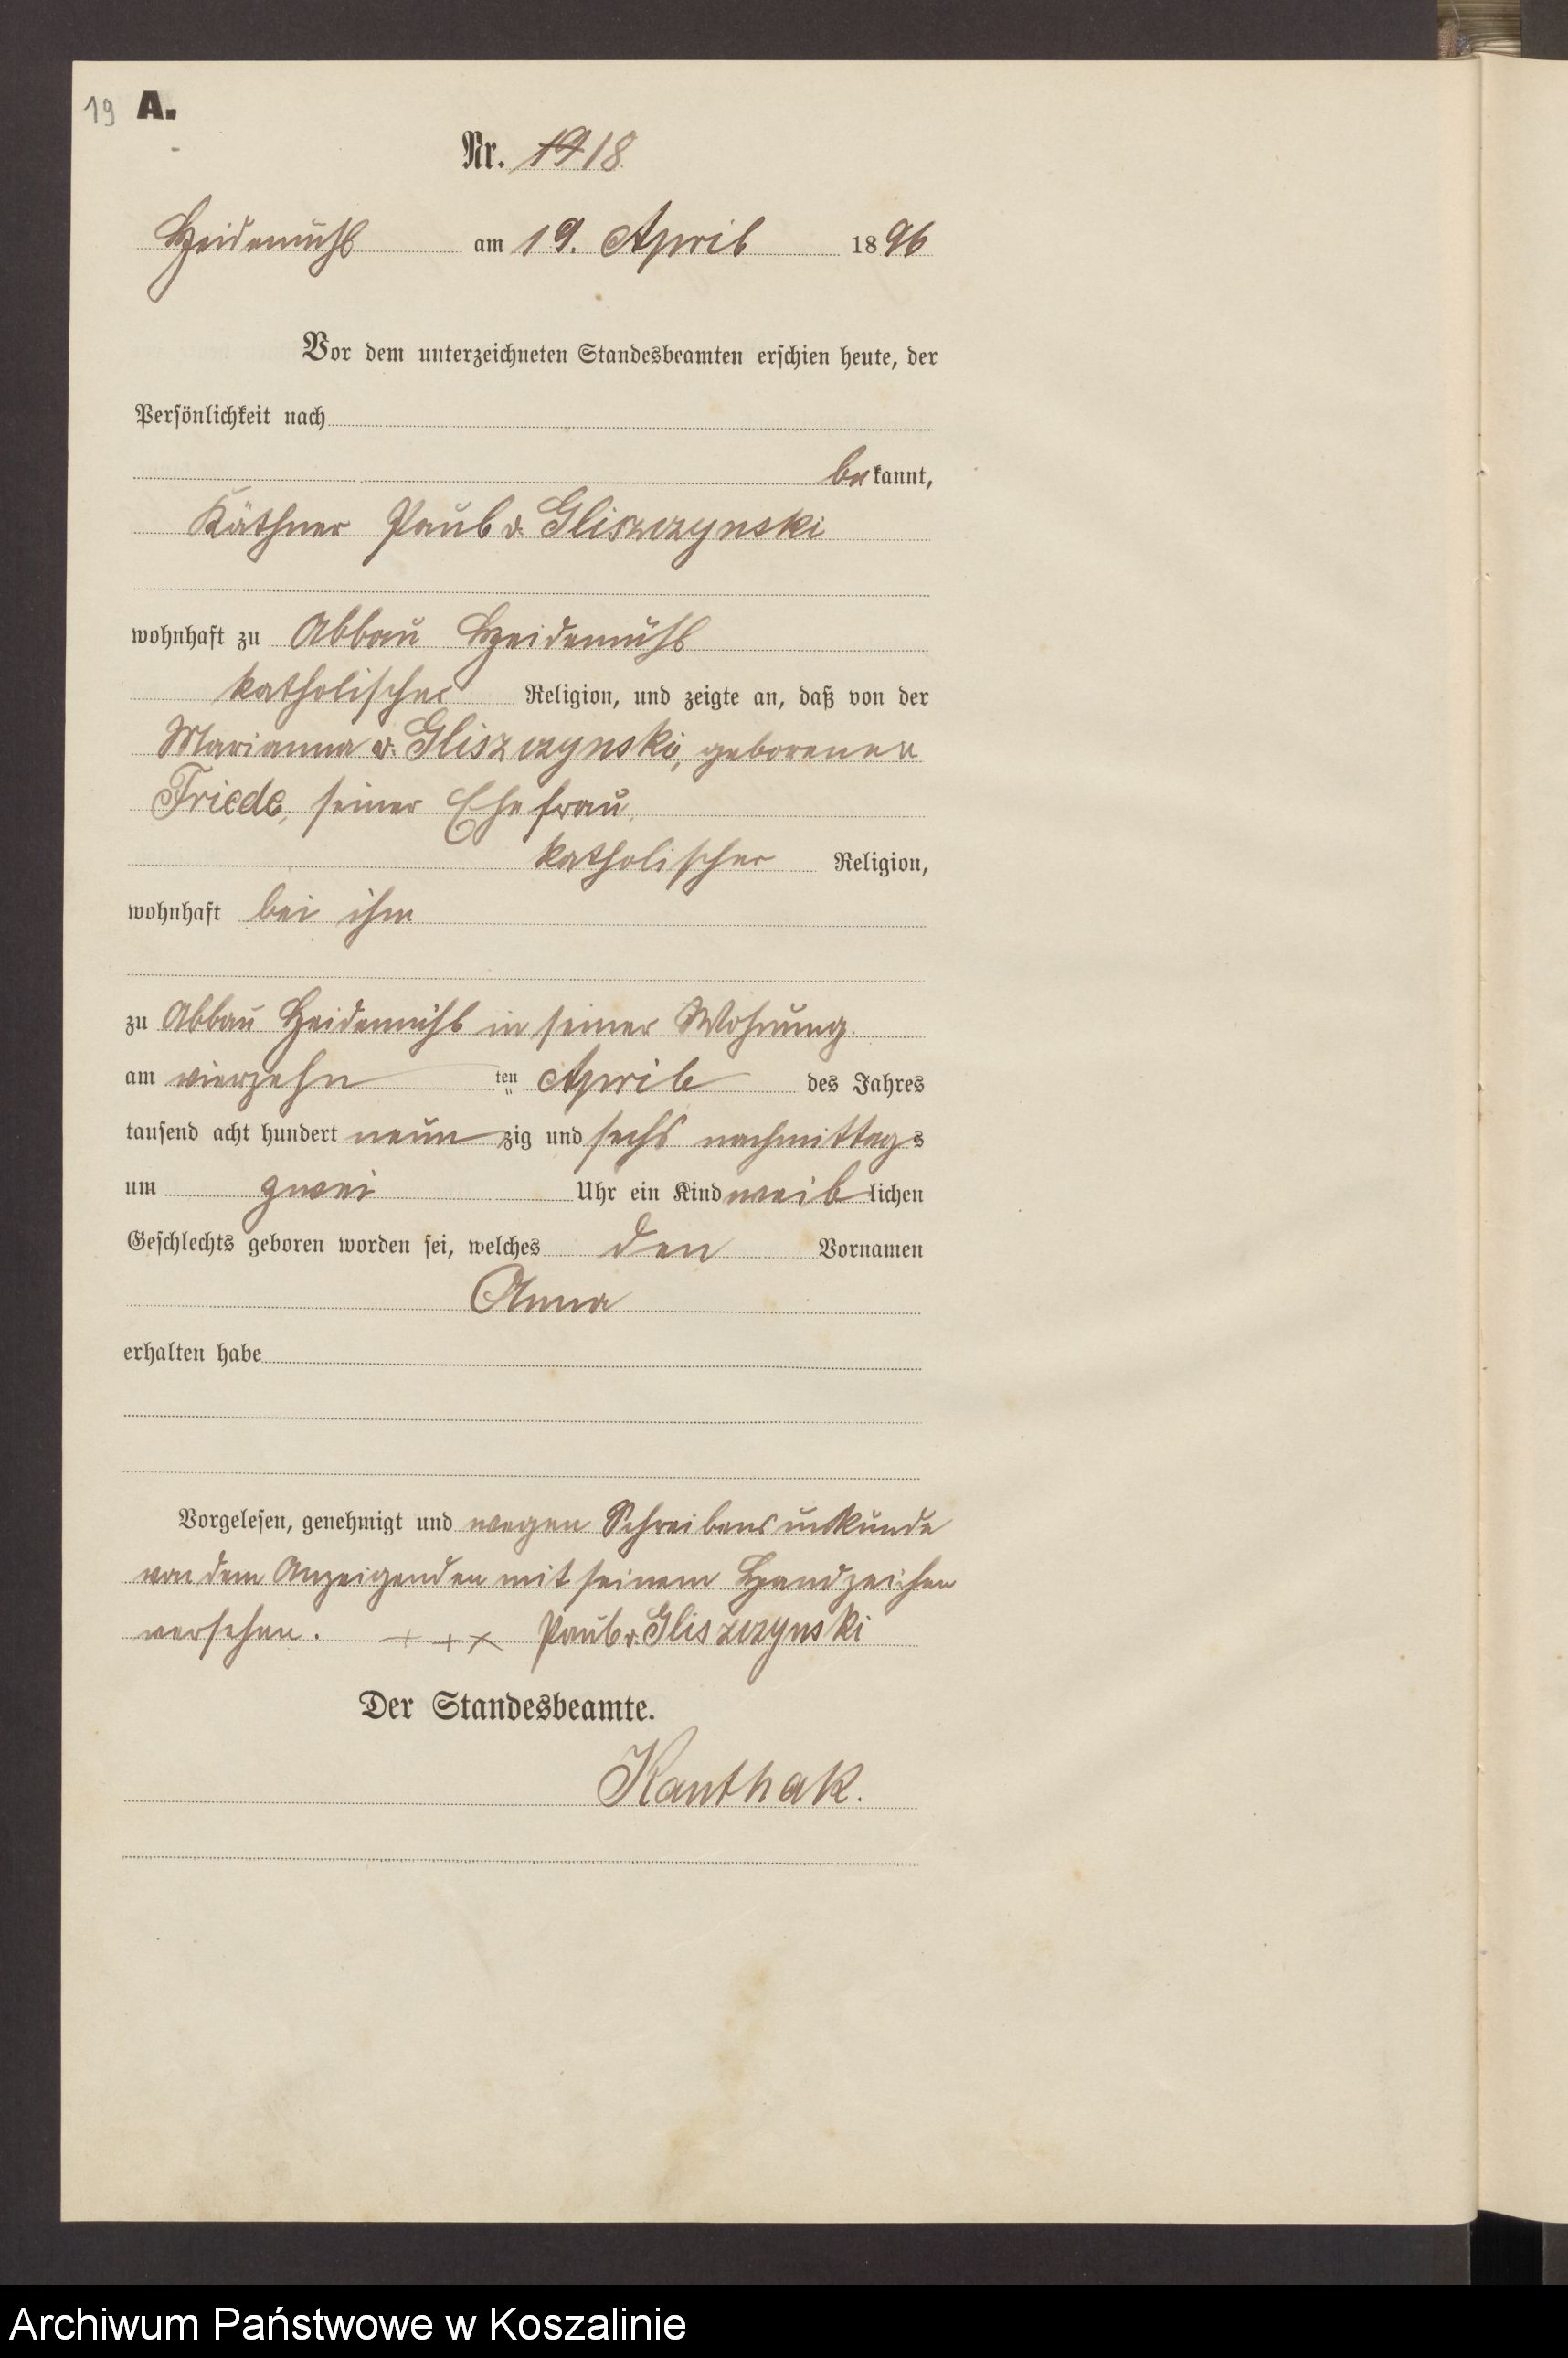 19 A.
Nr. 19 18.
Heidemühl am 19. April 1896
Vor dem unterzeichneten Standesbeamten erschien heute, der
Persönlichkeit nach
bekannt,
Käthner Paul v. Gliszczynski
wohnhaft zu Abbau Heidemühl
katholischer Religion, und zeigte an, daß von der
Marianna v. Gliszczynski, geborenen
Friede, seiner Ehefrau,
katholischer Religion,
wohnhaft bei ihm
zu Abbau Heidemühl in seiner Wohnung.
am vierzehn ten April des Jahres
tausend acht hundert neun zig und sechs nachmittags
um zwei Uhr ein Kind weiblichen
Geschlechts geboren worden sei, welches den Vornamen
Anna
erhalten habe
Vorgelesen, genehmigt und wegen Schreibensunkunde
von dem Anzeigenden mit seinem Handzeichen
versehen. + + × Paul v. Gliszczynski
Der Standesbeamte.
Kanthak.
Archiwum Państwowe w Koszalinie